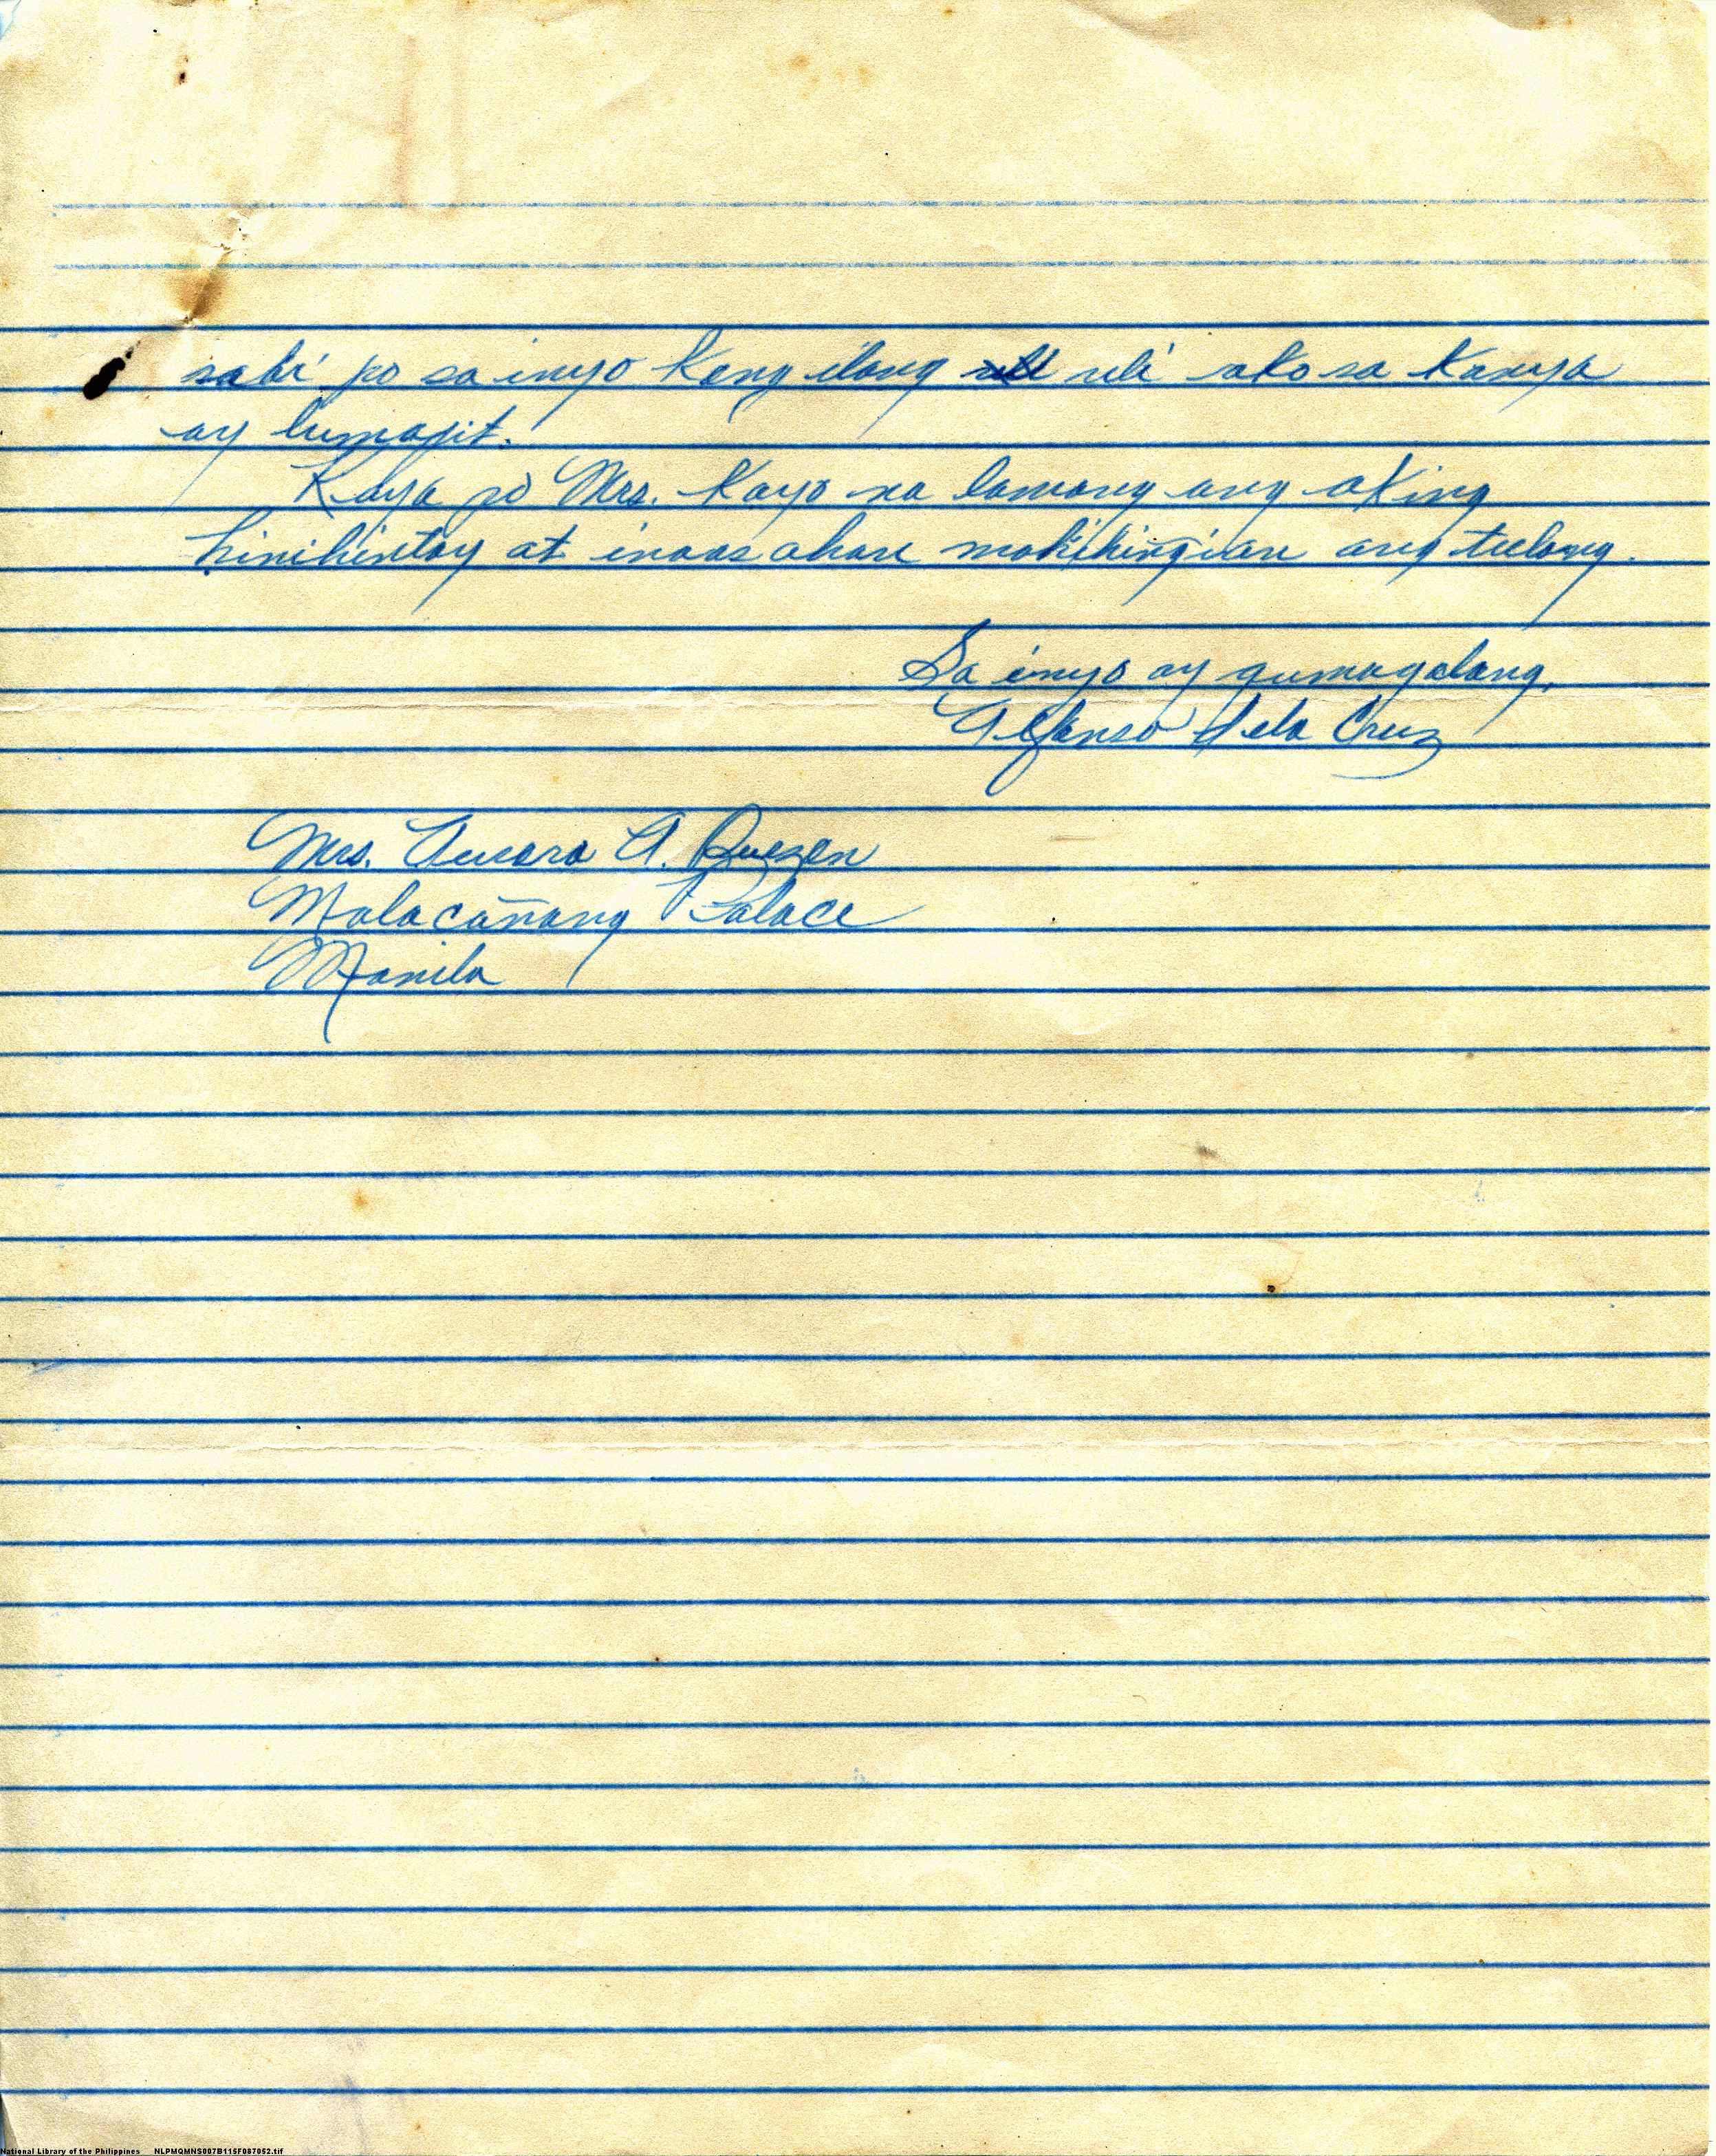 sabi po sa inyo kong ilang uli ako sa Kanya
ay lumapit.
Kaya po Mrs. Kayo na lamang ang aking
hinihintay at inaasahan mahihingian ang tulong.
Sa inyo ay gumagalang,
Alfonso dela Cruz
Mrs. Aurora A. Quezon
Malacañang Palace
Manila
National Library of the Philippines NLPMQMNS007B115F087052.tif